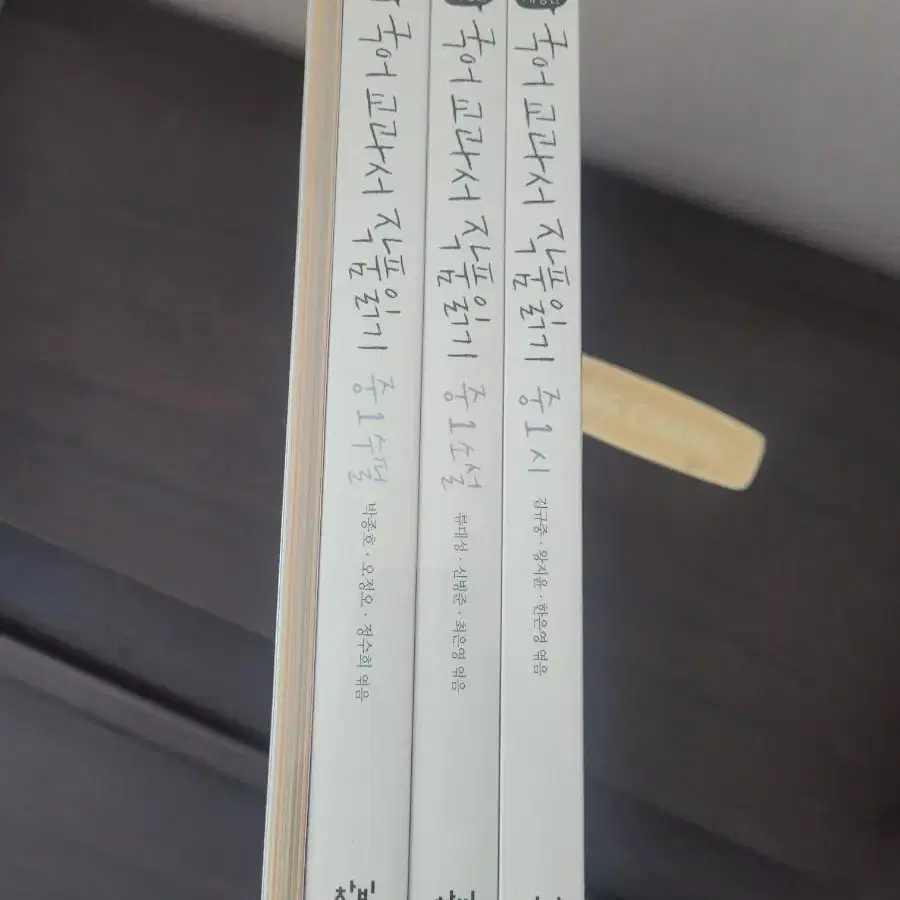 국어 교과서 작품 읽기 중1 수필
박종호 · 오정오 · 정수희 엮음
창비
국어 교과서 작품 읽기 중1 소설
류대성 · 신병준 · 최은영 엮음
창비
국어 교과서 작품 읽기 중1 시
김규중 · 왕지윤 · 한은영 엮음